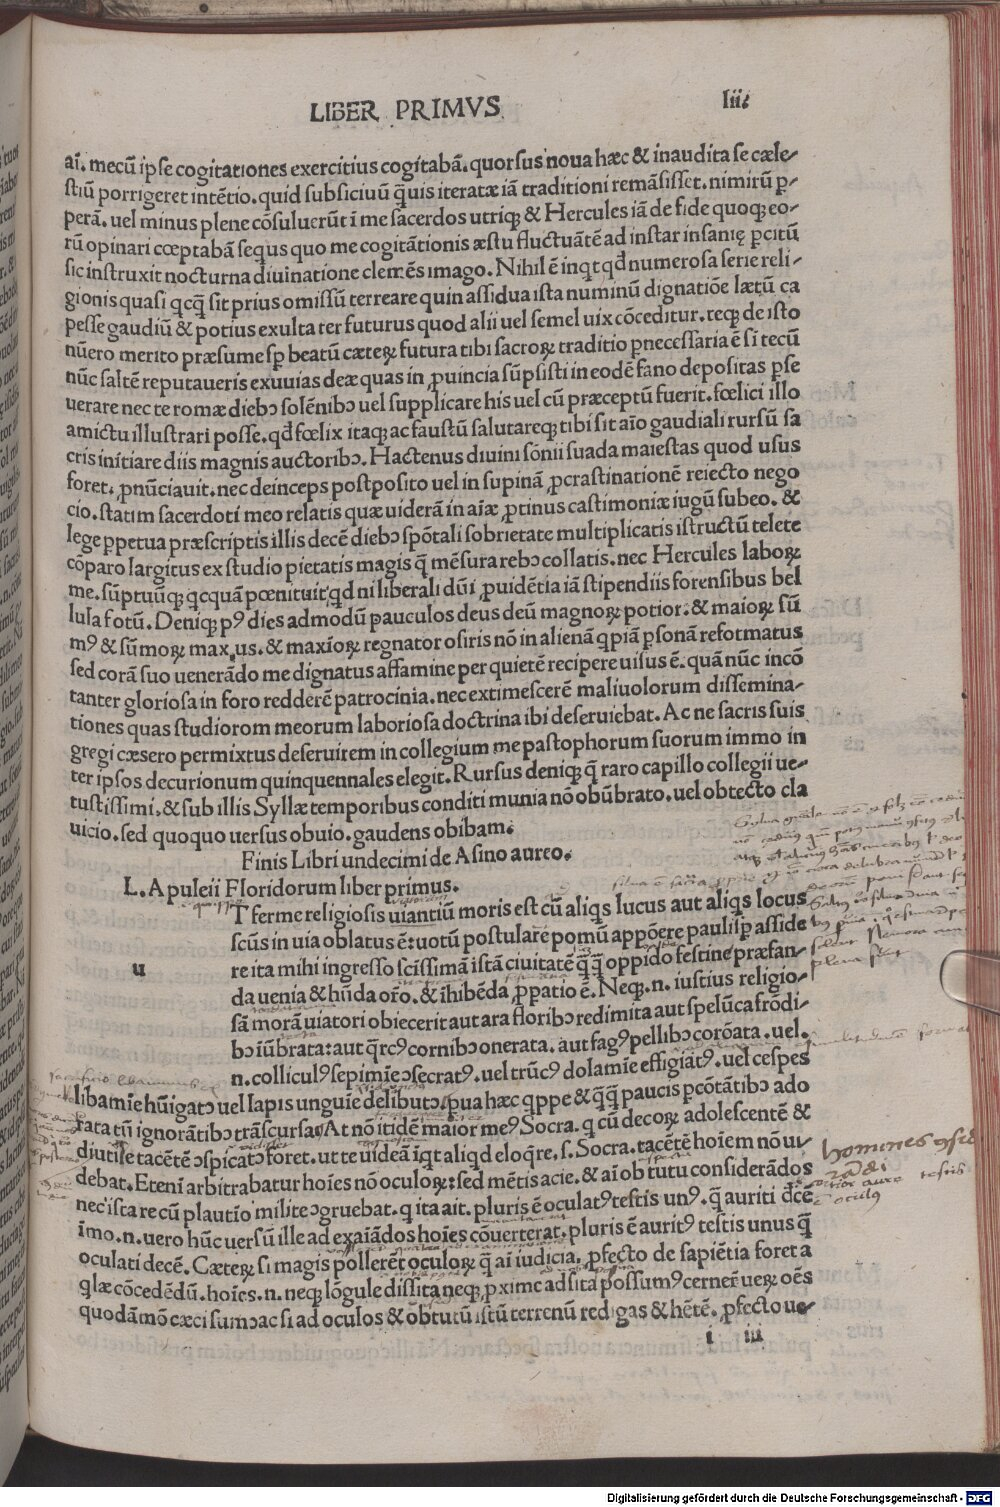 LIBER PRIMVS
liii
aĩ. mecũ ipse cogitationes exercitius cogitabã. quorsus noua hæc & inaudita se cæle-
stiũ porrigeret intẽtio. quid subsiciuũ q̃uis iteratæ iã traditioni remãsisset. nimirũ ꝑ-
perã. uel minus plene cõsuluerũt ĩ me sacerdos utriqꝫ & Hercules iã de fide quoqꝫ eo-
rũ opinari cœptabã seqƷ quo me cogitãtionis æstu fluctuãtẽ ad instar insanię ꝑcitũ
sic instruxit nocturna diuinatione clemẽs imago. Nihil ẽ inqt qđ numerosa serie reli-
gionis quasi qcq̃ sit prius omissũ terreare quin assidua ista numinũ dignatiõe lætũ ca
pesse gaudiũ & potius exulta ter futurus quod alii uel semel uix cõceditur. teqꝫ de isto
nũero merito præsume sp̱ beatũ cæteꝝ futura tibi sacroꝝ traditio ꝑnecessaria ẽ si tecũ
nũc saltẽ reputaueris exuuias deæ quas in ꝓuincia sũpsisti in eodẽ fano depositas ꝑse
uerare nec te romæ diebꝰ solẽnibꝰ uel supplicare his uel cũ præceptũ fuerit. fœlici illo
amictu illustrari posse. qđ fœlix itaqꝫ ac faustũ salutareqꝫ tibi sit aĩo gaudiali rursũ sa
cris initiare diis magnis auctoribꝰ. Hactenus diuini sõnii suada maiestas quod usus
foret. ꝓnũciauit. nec deinceps postposito uel in supinã ꝓcrastinationẽ reiecto nego
cio. statim sacerdoti meo relatis quæ uiderã in aĩæ ꝓtinus castimoniæ iugũ subeo. &
lege ꝑpetua præscriptis illis decẽ diebꝰ spõtali sobrietate multiplicatis ĩstructũ telete
cõparo largitus ex studio pietatis magis q̃ mẽsura rebꝰ collatis. nec Hercules laboꝝ
me. sũptuũqꝫ qcquã pœnituit qđ ni liberali dũi ꝓuidẽtia iã stipendiis forensibus bel
lula fotũ. Deniqꝫ pꝰ dies admodũ pauculos deus deũ magnoꝝ potior: & maioꝝ sũ
mꝰ & sũmoꝝ maximus. & maxĩoꝝ regnator osiris nõ in alienã qpiã ꝑsonã refotmatus
sed corã suo uenerãdo me dignatus affamine per quietẽ recipere uisus ẽ. quã nũc incõ
tanter gloriosa in foro redderẽ patrocinia. nec extimescerẽ maliuolorum dissemina-
tiones quas studiorum meorum laboriosa doctrina ibi deseruiebat. Ac ne sacris suis
gregi cæsero permixtus deseruirem in collegium me pastophorum suorum immo in
ter ipsos decurionum quinquennales elegit. Rursus deniqꝫ q̃ raro capillo collegii ue-
tustissimi. & sub illis Syllæ temporibus conditi munia nõ obũbrato. uel obtecto cla
uicio. sed quoquo uersus obuio. gaudens obibam.
Finis Libri undecimi de Asino aureo.
L. Apuleii Floridorum liber primus.
u
T ferme religiosis uiantiũ moris est cũ aliqs lucus aut aliqs locus
scũs in uia oblatus ẽ: uotũ postulare pomũ appõere paulisꝑ asside
re ita mihi ingresso scĩssimã istã ciuitatẽ q̃q̃ oppido festine præfan-
da uenia & hũda or̃o. & ĩhibẽda ꝓpatio ẽ. Neqꝫ .n. iustius religio-
sã morã uiatori obiecerit aut ara floribꝰ redimita aut spelũca frõdi-
bꝰ iũbrata: aut q̃rcꝰ cornibꝰ onerata. aut fagꝰ pellibꝰ corõata. uel.
n. colliculꝰ sepimĩe ꝯsecratꝰ. uel trũcꝰ dolamĩe effigiatꝰ. uel cespes
libamĩe hũigatꝰ uel lapis unguĩe delibutꝰ. ꝑua hæc qppe & q̃q̃ paucis ꝑcõtãtibꝰ ado
rata tñ ignorãtibꝰ trãscursa. At nõ itidẽ maior meꝰ Socra. q cũ decoꝝ adolescentẽ &
diutĩe tacẽtẽ ꝯspicatꝰ foret. ut te uideã ĩqt aliqd eloqre. s. Socra. tacẽtẽ hoĩem nõ ui-
debat. Etenĩ arbitrabatur hoĩes nõ oculoꝝ: sed mẽtis acie. & aĩ obtutu considerãdos
nec ista re cũ plautĩo milite ꝯgruebat. q ita ait. pluris ẽ oculatꝰ testis unꝰ. q̃ auriti dẽcẽ
ĩmo .n. uero hũc uersũ ille ad exaĩãdos hoĩes cõuerterat. pluris ẽ auritꝰ testis unus q̃
oculati decẽ. Cæteꝝ si magis pollerẽt oculoꝝ q̃ aĩ iudicia. ꝓfecto de sapiẽtia foret a
qlæ cõcedẽdũ. hoĩes .n. neqꝫ lõgule dissita neqꝫ ꝓxime adsita possumꝰ cernere ueꝝ oẽs
quodãmõ cæci sumꝰ ac si ad oculos & obtutũ istũ terrenũ redigas & hẽtẽ. ꝓfecto ue-
i iii
homines ꝯside
rãdi
testis
oculꝰ
Digitalisierung gefördert durch die Deutsche Forschungsgemeinschaft - DFG